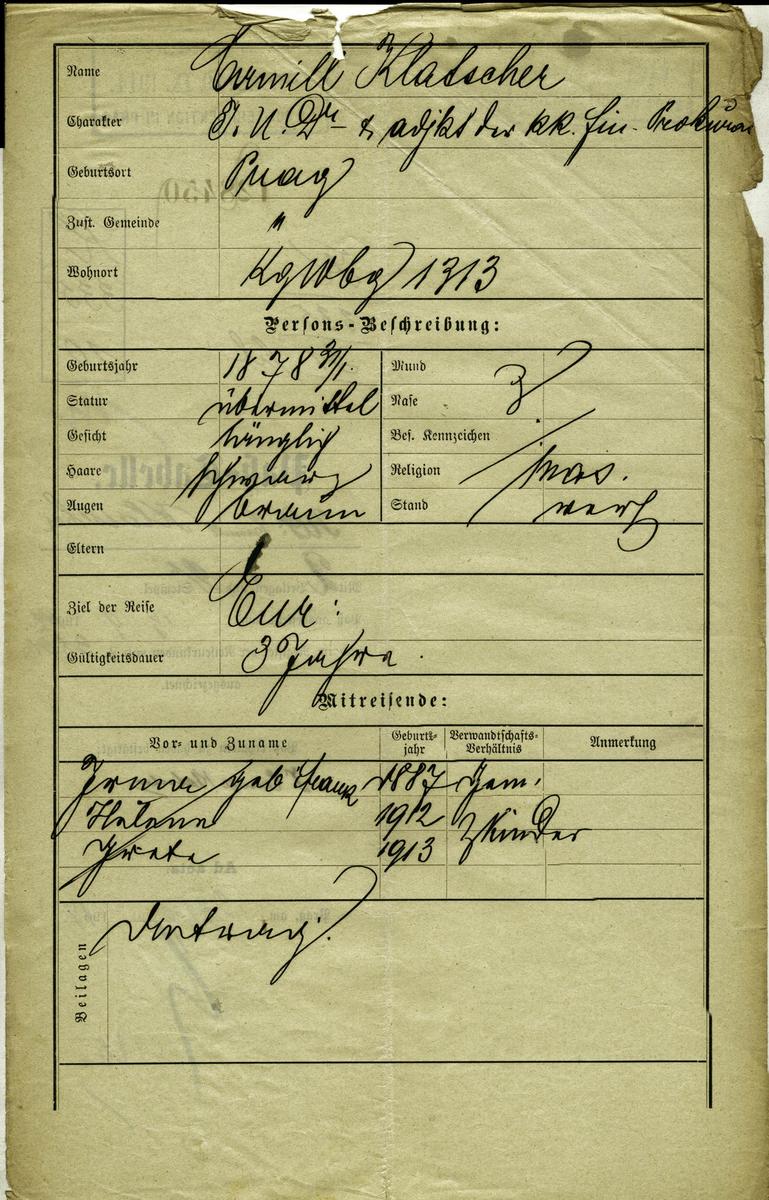 Name Camill Klatscher
Charakter J. U. Dr & adjkt der k.k. fin. Prokura
Geburtsort Prag
Zust. Gemeinde "
Wohnort KgWbg 1313
Persons-Beschreibung:
Geburtsjahr 1878 Mund
Statur übermittel Nase
Gesicht länglich Bes. Kennzeichen /
Haare schwarz Religion mos.
Augen braun Stand verh
Eltern
Ziel der Reise Eur:
Gültigkeitsdauer 3 Jahre.
Mitreisende:
Vor- und Zuname Geburts-jahr Verwandtschafts-Verhältnis Anmerkung
Irma geb Frank 1887 Gem.
Helene 1912
Grete 1913 Kinder
Beilagen Antrag.